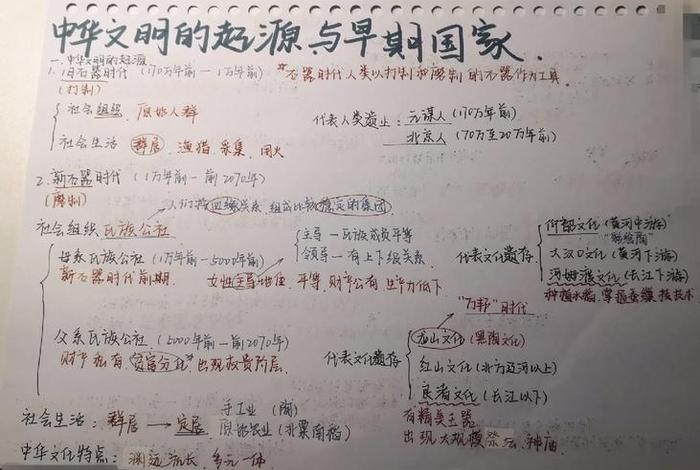 中华文明的起源与早期国家.
一.中华文明的起源
1.旧石器时代（170万年前—1万年前） *石器时代人类以打制和磨制的石器作为工具.
（打制）
社会组织 原始人群
代表人类遗址：元谋人（170万年前）
北京人（70万至20万年前）
社会生活 群居、渔猎、采集、用火
2.新石器时代（1万年前—前2070年）
（磨制）
人们按血缘关系，组成比较稳定的集团
社会组织 氏族公社
母系氏族公社（1万年前—5000年前）
新石器时代前期.
女性主导地位
主导—氏族成员平等
领导—有上下级关系.
平等，财产公有，生产力低下
代表文化遗存
仰韶文化（黄河中游）
"彩绘陶"
大汶口文化（黄河下游）
河姆渡文化（长江下游）
种植水稻，掌握養蚕技术
父系氏族公社（5000年前—前2070年）
财产私有、贫富分化、出现权贵阶层.
"万邦"时代
代表文化遗存
龙山文化（黑陶文化）
红山文化（北方辽河以上）
良渚文化（长江以下）
有精美玉器
出现大规模祭坛、神庙
社会生活：群居→定居
手工业（陶）
原始农业（北粟南稻）
中华文化特点：渊远流长，多元一体